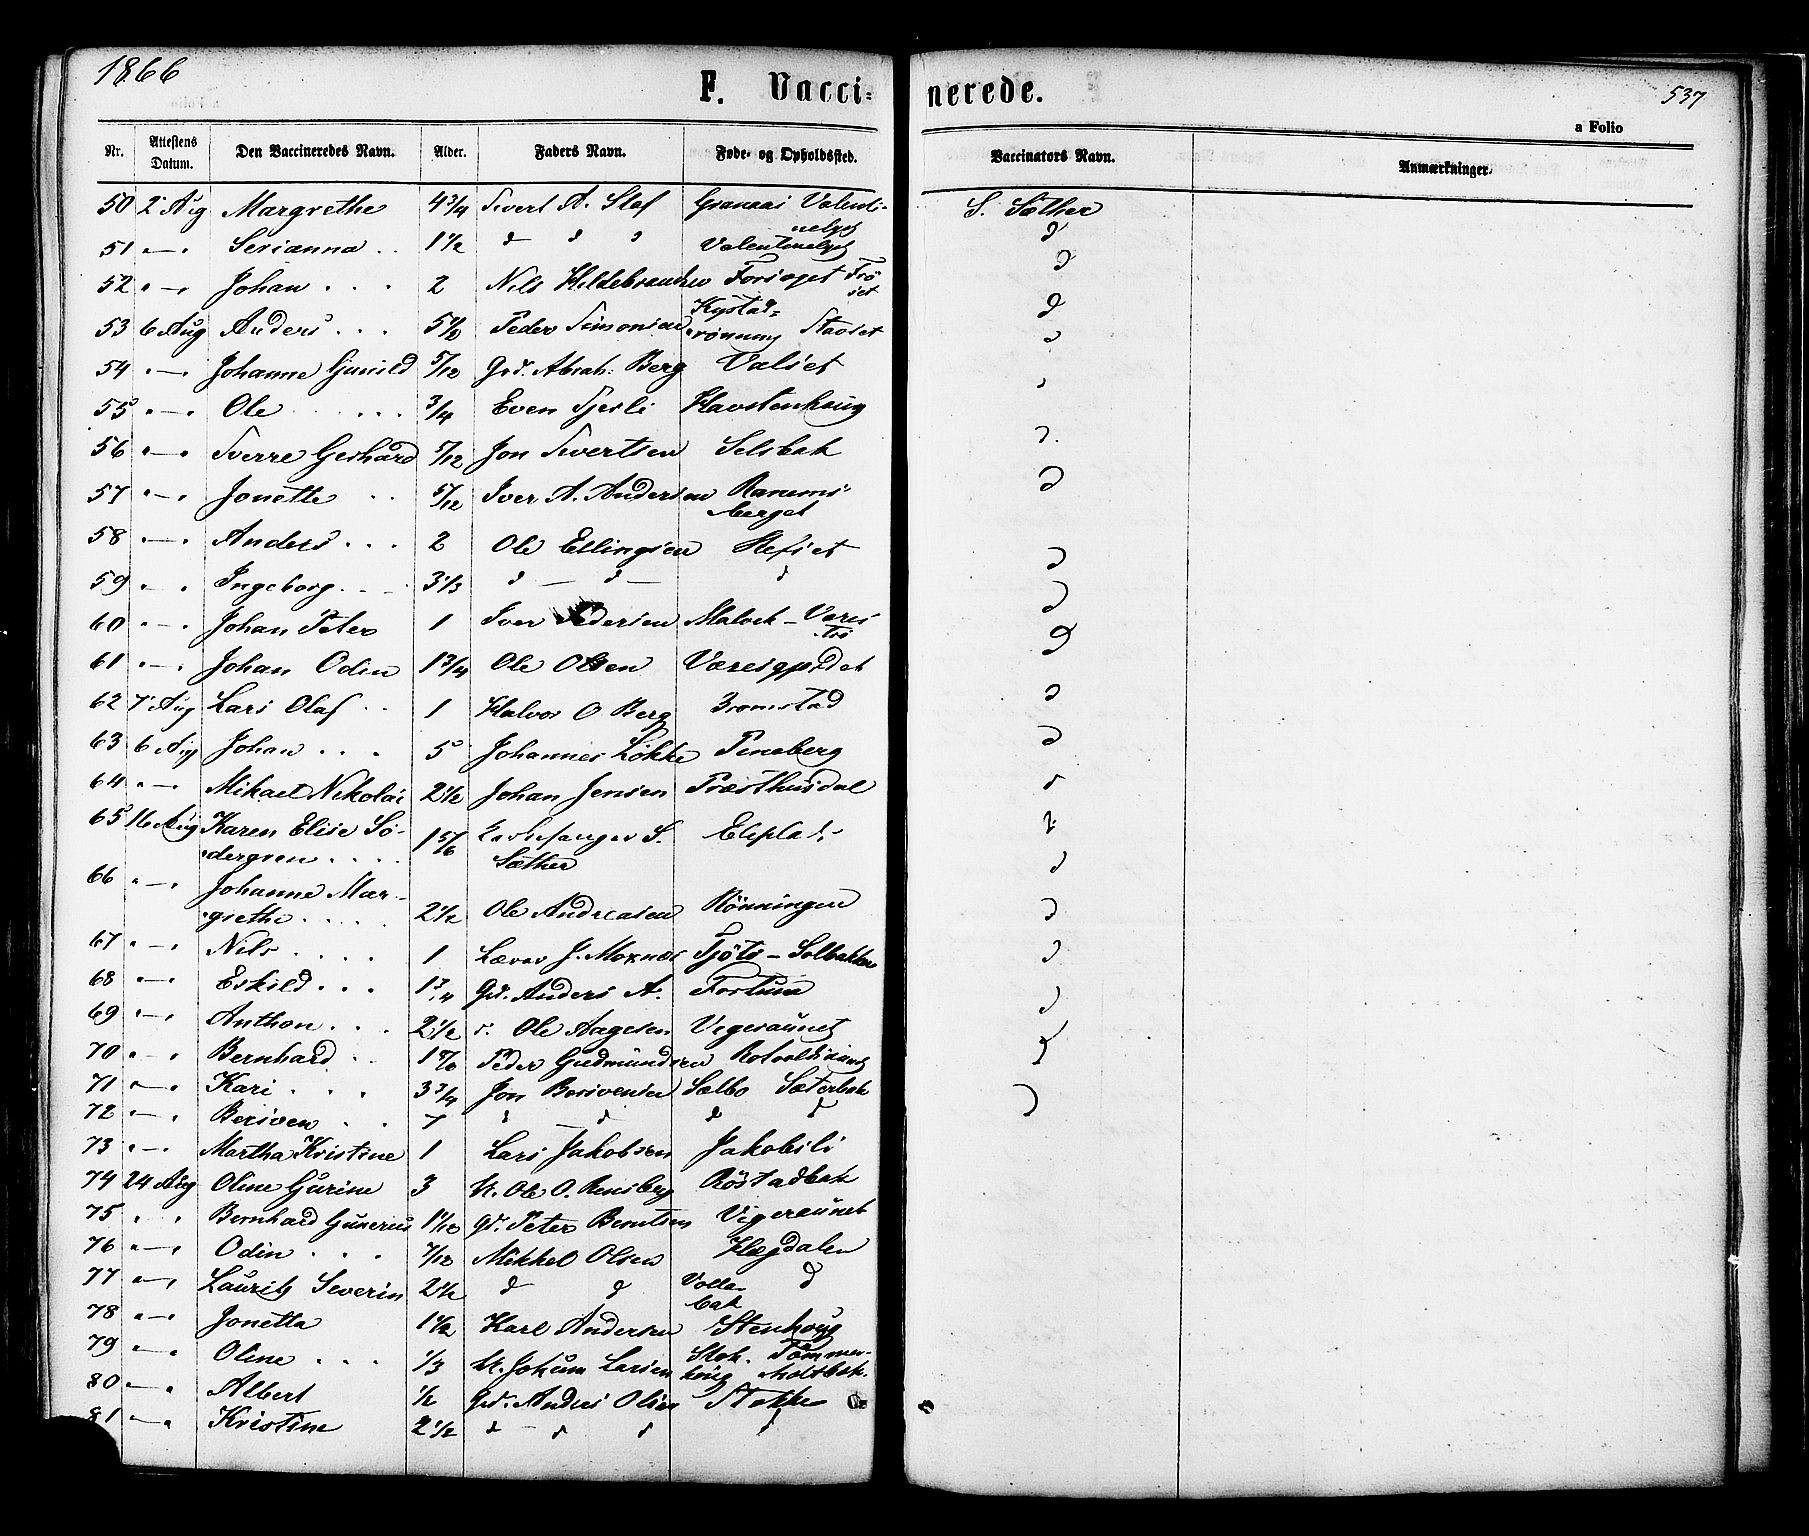 1866
F. Vacci= nerede.
537
a Folio
Nr. Attestens Datum. Den Vaccineredes Navn. Alder. Faders Navn. Føde- og Opholdssted. Vaccinators Navn. Anmærkninger.
50 2 Aug Margrethe 4 3/4 Sivert A. Slaf Granaas Valenti- S. Sæther
nelyst
51 " — " Serianna . . 1 1/2 d d d Valentinelyst d
52 " — " Johan . . . 2 Nils Hildebrandsen Forsøget Trö d
set
53 6 Aug Anders . . . Peder Simonsen Kystad= d
rönning Stavset
54 " — " Johanne Gunild 5/12 Gd. Abrah: Berg Valset d
55 " — " Ole . . . . . 3/4 Even Tjesli Havstenhaug
56 " — " Sverre Gerhard 5/12 Jon Sivertsen Selsbak d.
57 " — " Jonette . . 5/12 Iver A. Andersen Ranems d
berget
58 " — " Anders . . . 2 Ole Ellingsen Hefset d
59 " " Ingeborg . . . 3 1/3 d — d — d d
60 " — " Johan Peter 1 Iver Pedersen Malvik - Veres d
trö
61 " — " Johan Odin 1 3/4 Ole Olsen Væresgjerdet
62 7 Aug Lars Olaf . . 1 Halvor O Berg Bromstad d
63 6 Aug Johan . . . 5 Johannes Løkke Peneberg d
64 " — " Mikael Nikolai 2 1/2 Johan Jensen Præsthusdal
65 16 Aug Karen Elise Sö- 1 5/6 S. Elpladt
dergren . . . . Sæther
66 " — " Johanne Mar-
grethe . . . . 2 1/2 Ole Andreasen Rönningen d
67 " — " Nils . . . . 1 J. Moxnes — Solbakken d
68 " — " Eskild . . . 1 3/4 Gd. Anders A. Fortuna
69 " — " Anthon . . . 2 1/2 Ole Aagesen Vegeraunet d
70 " — " Bernhard . . Peder Gudmundsen
71 " — " Kari . . . 3 3/4 Jon Selbo Sæterbak d
72 " — " Beriven . . 7 d — d d d
73 " — " Martha Kristine 1 Lars Jakobsen Jakobsli
74 24 Aug Oline Gurine 3 H. Ole O. Rensberg Röstadbak
75 " " Bernhard Gunerius 1 1/12 gd. Peter Berntsen Vegeraunet
76 " — " Odin . . . 7/12 Mikkel Olsen Hægdalen
77 " — " Lauritz Severin 2 1/2 d d Volla- d
bak
78 " — " Jonetta 1 1/2 Karl Andersen Stenhaug
79 " — " Oline . . . 1/3 H. Johum Larsen Stok. Tömmer-
haug Moltbak.
80 " — " Albert 1/2 Gd. Anders Olsen Stokke
81 " — " Kristine 2 1/2 d — d d d